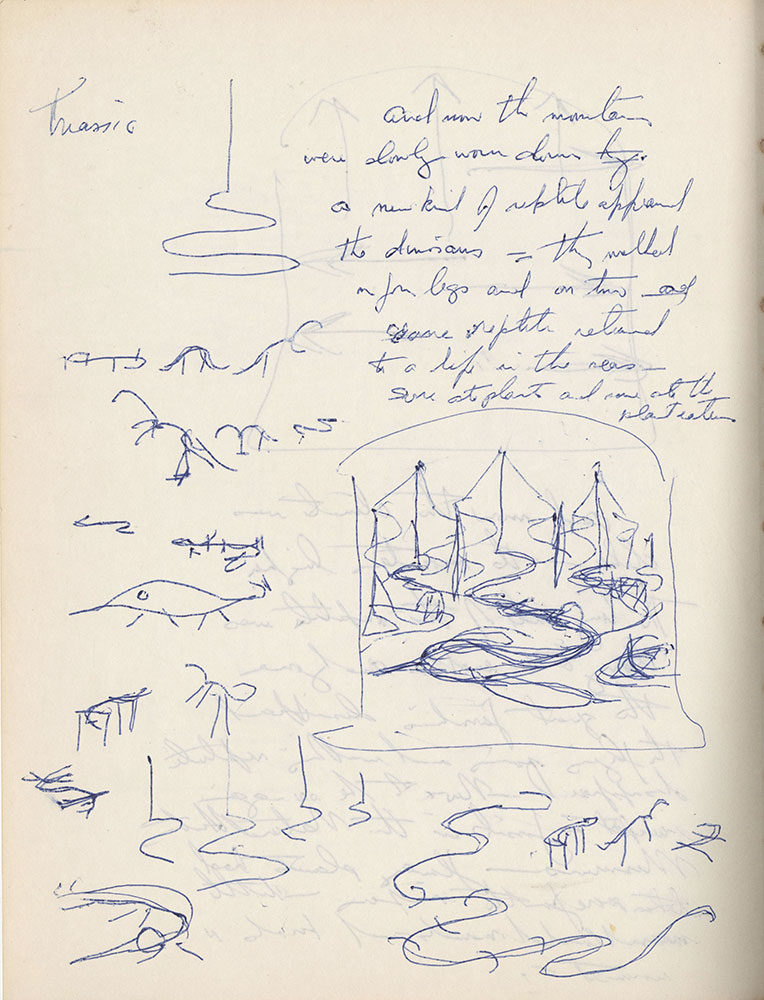 Triassic
and now the mountains
were slowly worn down by.
a new kind of reptile appeared
the dinosaurs = they walked
on four legs and on two and
some reptiles returned
to a life in the seas –
some ate plants and some ate the
plant eaters